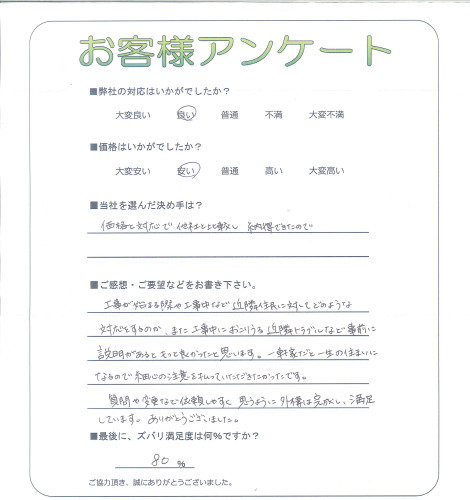 お客様アンケート
■弊社の対応はいかがでしたか？
大変良い 良い 普通 不満 大変不満
■価格はいかがでしたか？
大変安い 安い 普通 高い 大変高い
■当社を選んだ決め手は？
価格と対応で他社と比較し 納得できたので
■ご感想・ご要望などをお書き下さい。
工事が始まる際や工事中など近隣住民に対してどのような
対応をするのか、また工事中におこりうる近隣トラブルなど事前に
説明があるともっと良かったと思います。一軒家だと一生の住まいに
なるので細心の注意を払っていただきたかったです。
質問や変更など依頼しやすく 思うように外構は完成し、満足
しています。ありがとうございました。
■最後に、ズバリ満足度は何％ですか？
80 ％
ご協力頂き、誠にありがとうございました。